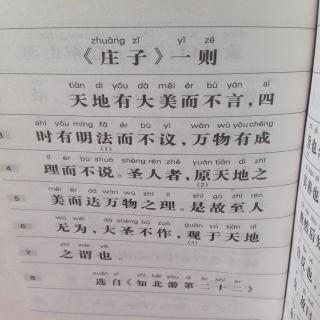 zhuāng zǐ yī zé
《庄子》一则
tiān dì yǒu dà měi ér bù yán sì
天地有大美而不言，四
3 shí yǒu míng fǎ ér bù yì wàn wù yǒu chéng
时有明法而不议，万物有成
4 lǐ ér bù shuō shèng rén zhě yuán tiān dì zhī
理而不说。圣人者，原天地之
(1)
5 měi ér dá wàn wù zhī lǐ shì gù zhì rén
美而达万物之理。是故至人
6 wú wéi dà shèng bú zuò guān yú tiān dì
无为，大圣不作，观于天地
(2) (3)
7 zhī wèi yě
之谓也。
8 xuǎn zì zhī běi yóu dì èr shí èr
选自《知北游第二十二》